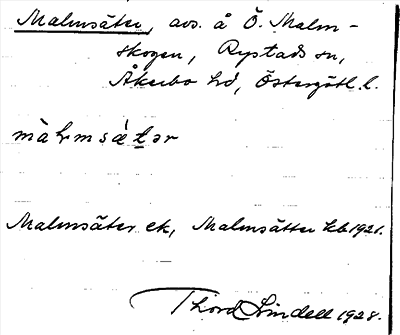 Malmsäter, avs. å Ö. Malm-
skogen, Rystads sn,
Åkerbo hd, Östergötl. l.
màlmsǽtər
Malmsäter ek, Malmsätter kb 1921.
Thord Lindell 1928.